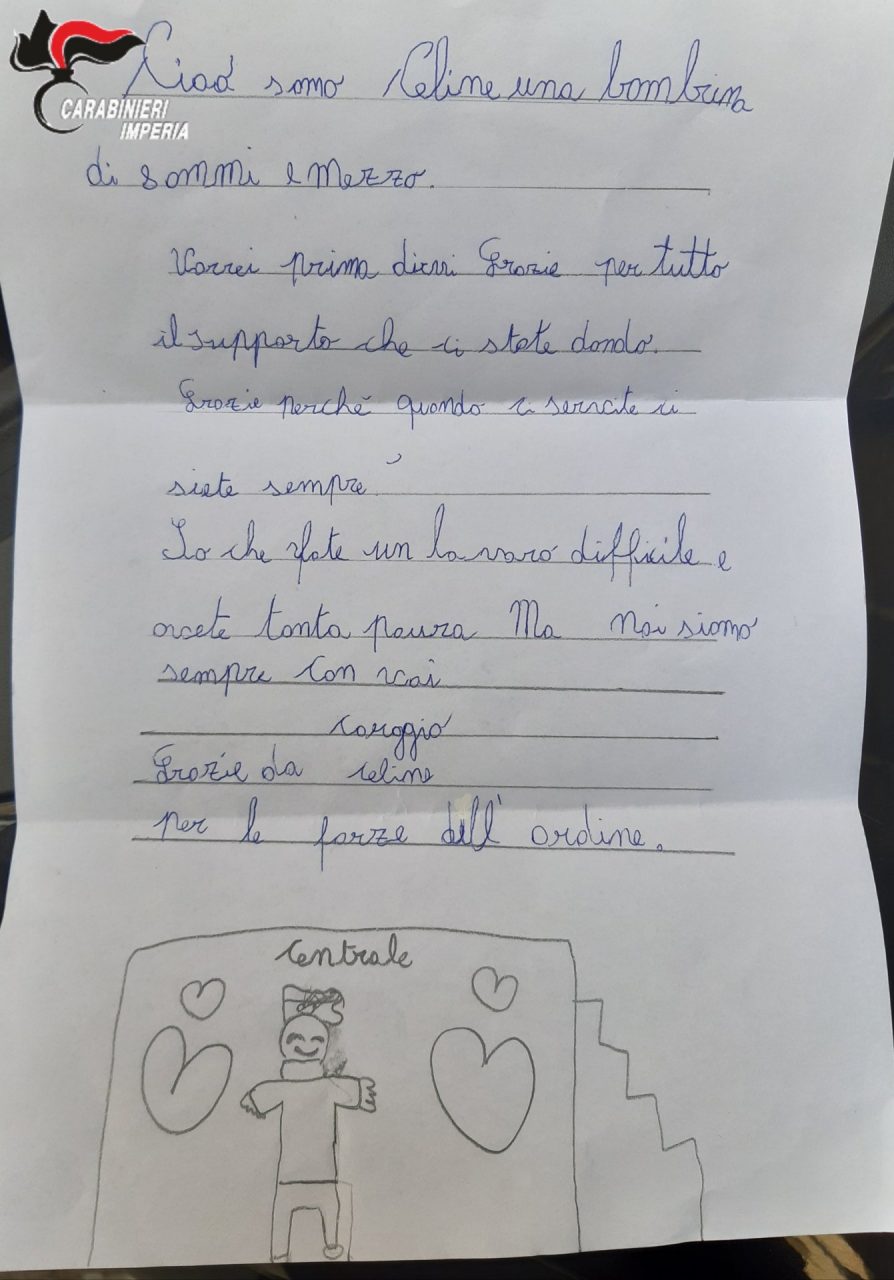 CARABINIERI
IMPERIA
Ciao sono Celine una bambina
di 8 anni e mezzo.
Vorrei prima dirvi Grazie per tutto
il supporto che ci state dando.
Grazie perché quando ci servite ci
siete sempre
So che fate un lavoro difficile e
avete tanta paura Ma noi siamo
sempre con voi
coraggio
Grazie da celine
per le forze dell'ordine.
Centrale